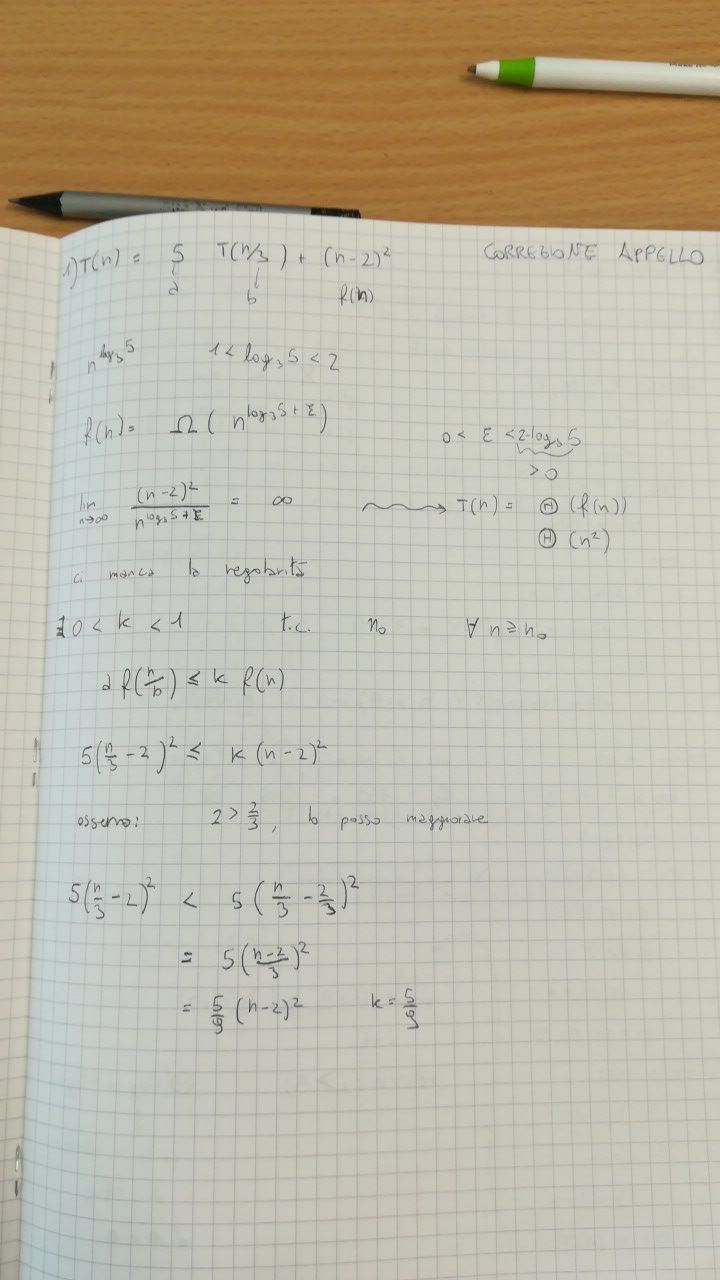 CORREZIONE APPELLO
1) T(n) = 5 T(n/3) + (n-2)²
a b f(n)
n^{log₃5} 1 < log₃5 < 2
f(n) = Ω( n^{log₃5+ε} )
0 < ε < 2-log₃5
> 0
lim_{n→∞} (n-2)² / n^{log₃5+ε} = ∞ ⟿ T(n) = Θ (f(n))
Θ (n²)
ci manca la regolarità
∃ 0 < k < 1 t.c. n₀ ∀ n ≥ n₀
a f(n/b) ≤ k f(n)
5(n/3 - 2)² ≤ k (n-2)²
osservo: 2 > 2/3, lo posso maggiorare
5(n/3 - 2)² < 5 (n/3 - 2/3)²
= 5((n-2)/3)²
= 5/9 (n-2)² k = 5/9